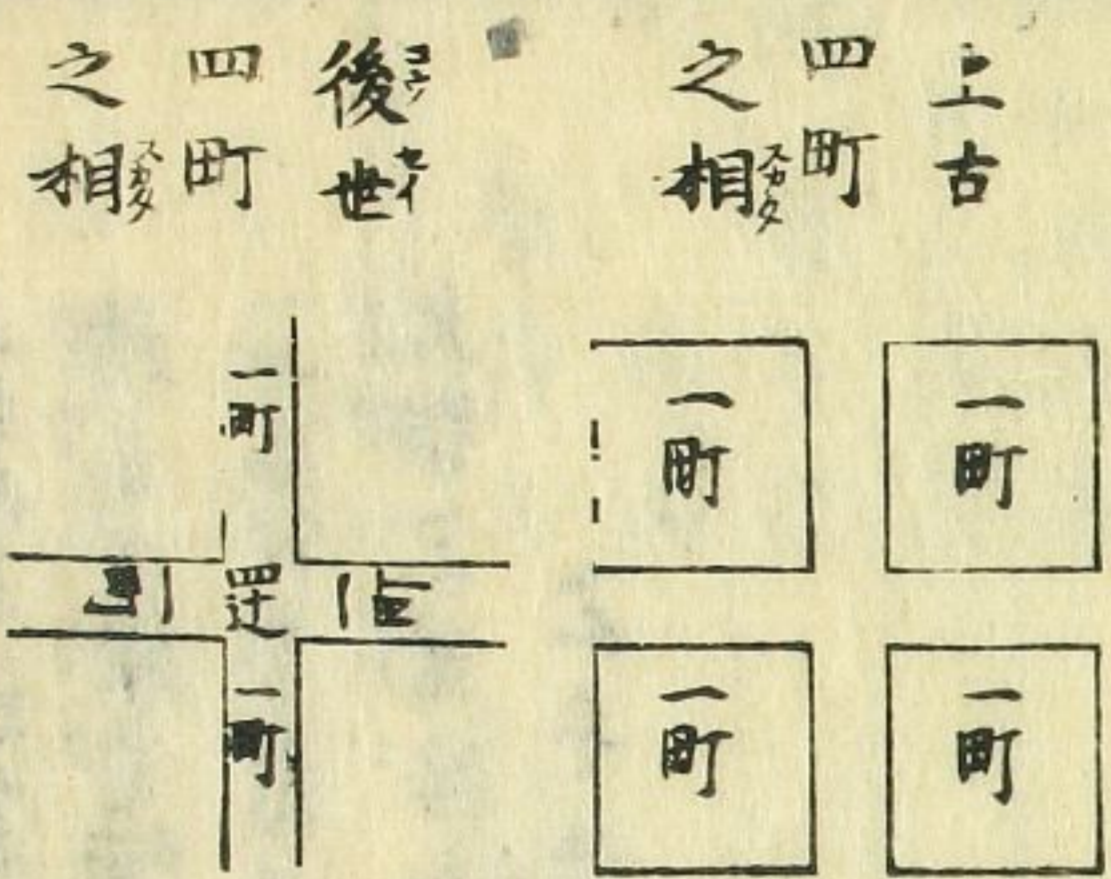 上古
四町
之相スカタ
一町
一町
一町
一町
後コウ世セイ
四町
之相スカタ
一町
一町
四辻
一町
一町